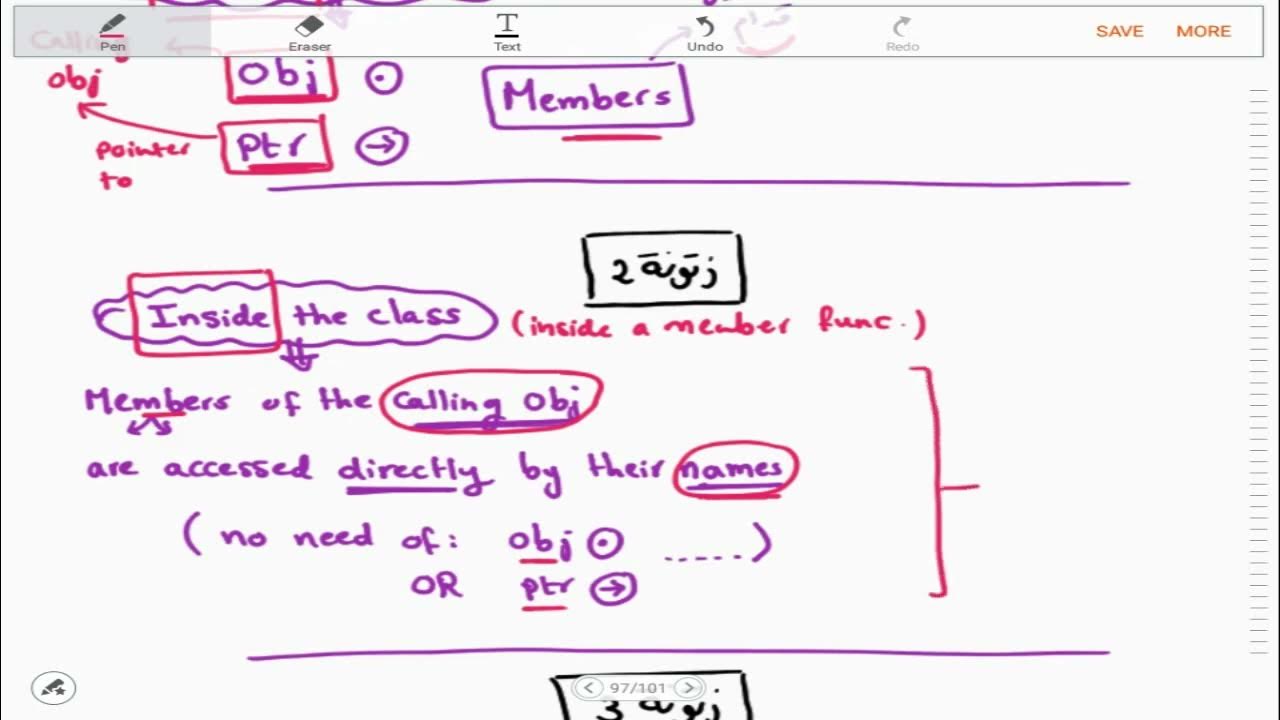 Pen Eraser Text Undo Redo SAVE MORE
Calling
obj
Obj .
Members
Ptr →
pointer
to
زتونة 2
Inside the class (inside a member func.)
Members of the Calling Obj
are accessed directly by their names
(no need of: obj . ......)
OR ptr →
97/101